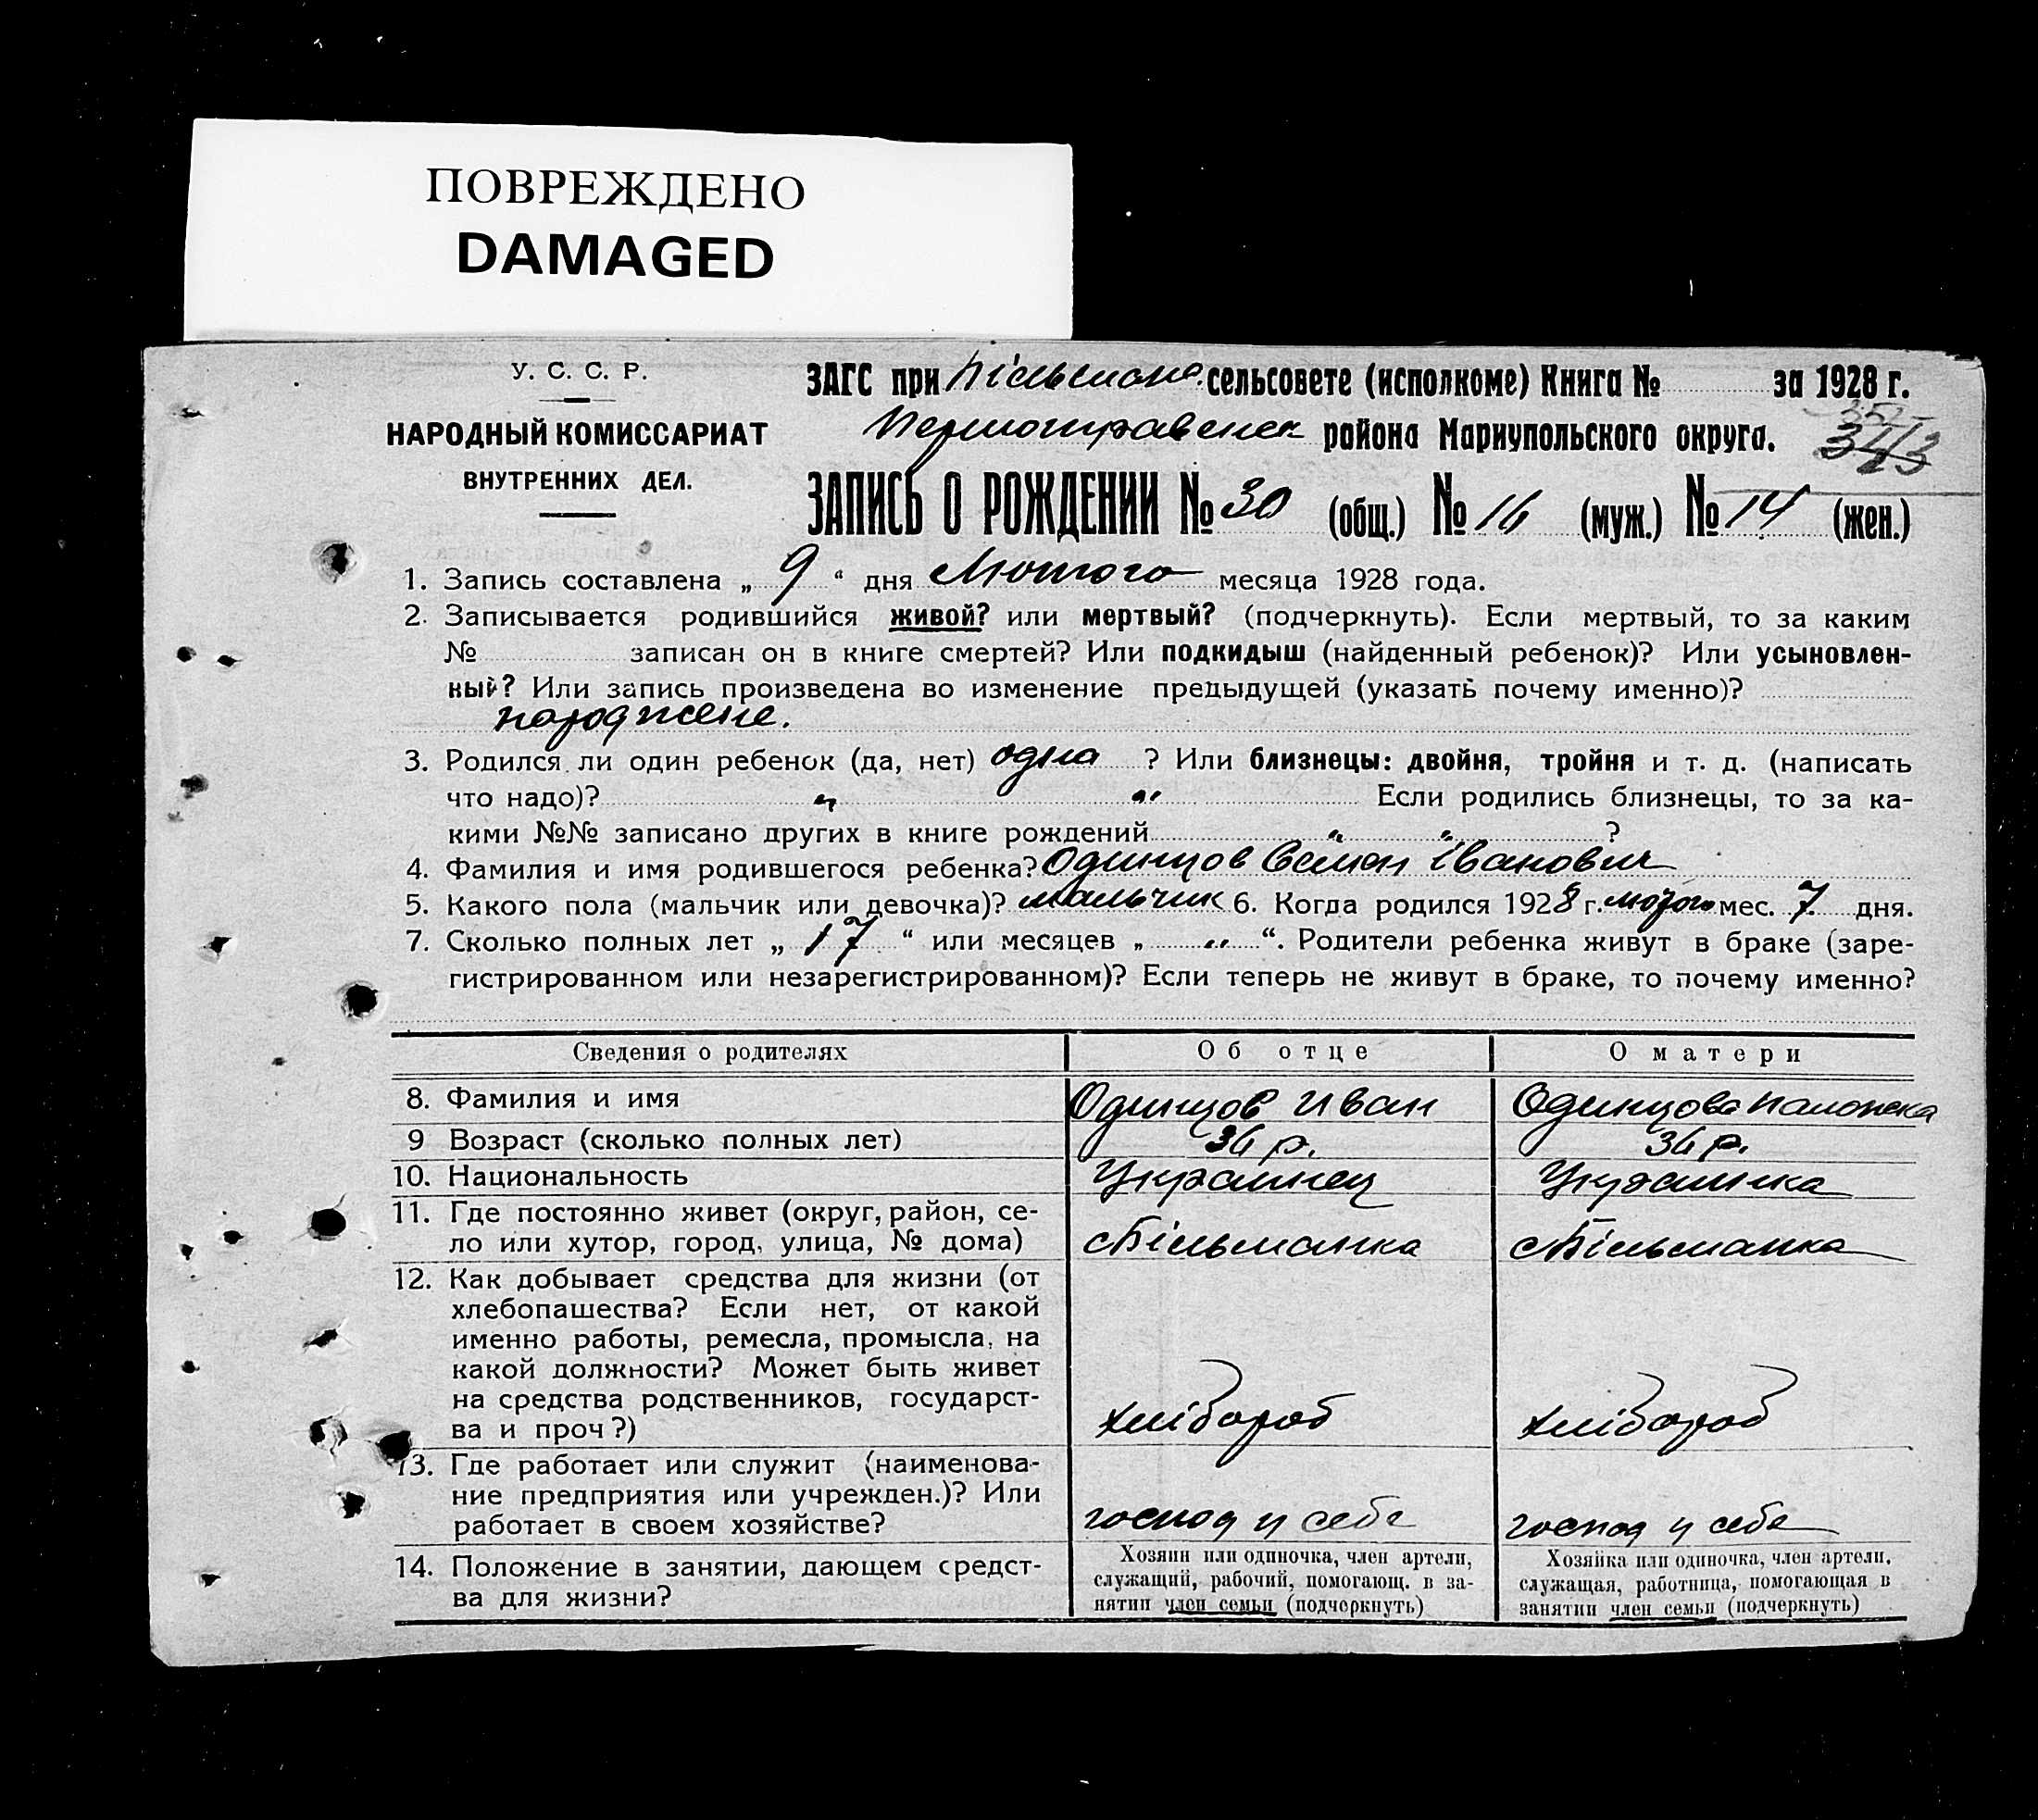 ПОВРЕЖДЕНО
DAMAGED
У. С. С. Р.
НАРОДНЫЙ КОМИССАРИАТ
ВНУТРЕННИХ ДЕЛ.
ЗАГС при сельсовете (исполкоме) Книга № за 1928 г.
района Мариупольского округа.
ЗАПИСЬ О РОЖДЕНИИ № 30 (общ.) № 16 (муж.) № 14 (жен.)
1. Запись составлена „ 9 “ дня Лютого месяца 1928 года.
2. Записывается родившийся живой? или мертвый? (подчеркнуть). Если мертвый, то за каким
№ записан он в книге смертей? Или подкидыш (найденный ребенок)? Или усыновлен-
ный? Или запись произведена во изменение предыдущей (указать почему именно)?
народжене.
3. Родился ли один ребенок (да, нет) одна ? Или близнецы: двойня, тройня и т. д. (написать
что надо)? „ „ Если родились близнецы, то за ка-
кими №№ записано других в книге рождений „ „ ?
4. Фамилия и имя родившегося ребенка? Одинцов Семен Іванович
5. Какого пола (мальчик или девочка)? мальчик 6. Когда родился 1928 г. мес. 7 дня.
7. Сколько полных лет „ 17 “ или месяцев „ „ “. Родители ребенка живут в браке (заре-
гистрированном или незарегистрированном)? Если теперь не живут в браке, то почему именно?
Сведения о родителях Об отце О матери
8. Фамилия и имя Одинцов Иван Одинцова
9 Возраст (сколько полных лет) 36 р. 36 р.
10. Национальность Украинец Украинка
11. Где постоянно живет (округ, район, се-
ло или хутор, город, улица, № дома) с Більманка с Більманка
12. Как добывает средства для жизни (от
хлебопашества? Если нет, от какой
именно работы, ремесла, промысла, на
какой должности? Может быть живет
на средства родственников, государст-
ва и проч?) хлібороб хлібороб
13. Где работает или служит (наименова-
ние предприятия или учрежден.)? Или
работает в своем хозяйстве? господ у себе господ у себе
14. Положение в занятии, дающем средст-
ва для жизни?
Хозяин или одиночка, член артели,
служащий, рабочий, помогающ. в за-
нятии член семьи (подчеркнуть)
Хозяйка или одиночка, член артели,
служащая, работница, помогающая в
занятии член семьи (подчеркнуть)